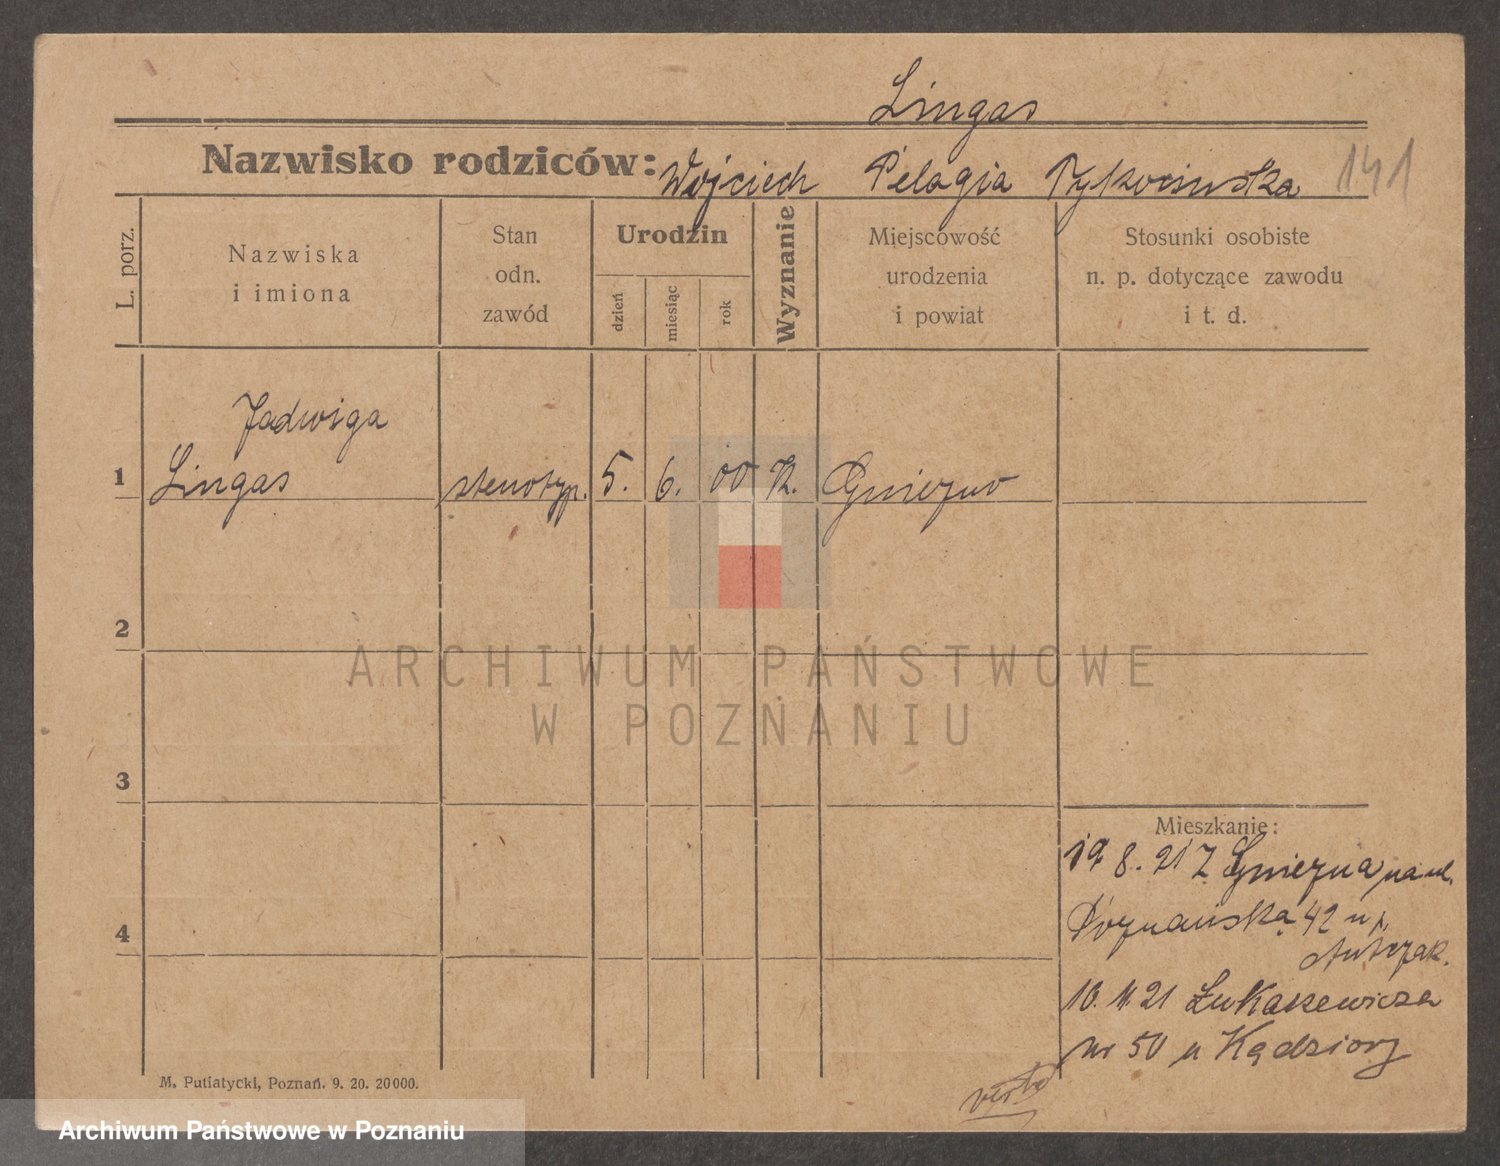 Lingas
Nazwisko rodziców: Wojciech Pelagia Tykocińska 141
L. porz.
Nazwiska
i imiona
Stan
odn.
zawód
Urodzin
dzień
miesiąc
rok
Wyznanie
Miejscowość
urodzenia
i powiat
Stosunki osobiste
n. p. dotyczące zawodu
i t. d.
Jadwiga
1 Lingas stenotyp. 5. 6. 00 K. Gniezno
2
ARCHIWUM PAŃSTWOWE
W POZNANIU
3
Mieszkanie:
8. 21 Z Gniezna na ul.
4 Poznańska 42 u p.
10. 11. 21 Łukaszewicza
nr 50 u Kądziory
verte
M. Putiatycki, Poznań. 9. 20. 20000.
Archiwum Państwowe w Poznaniu